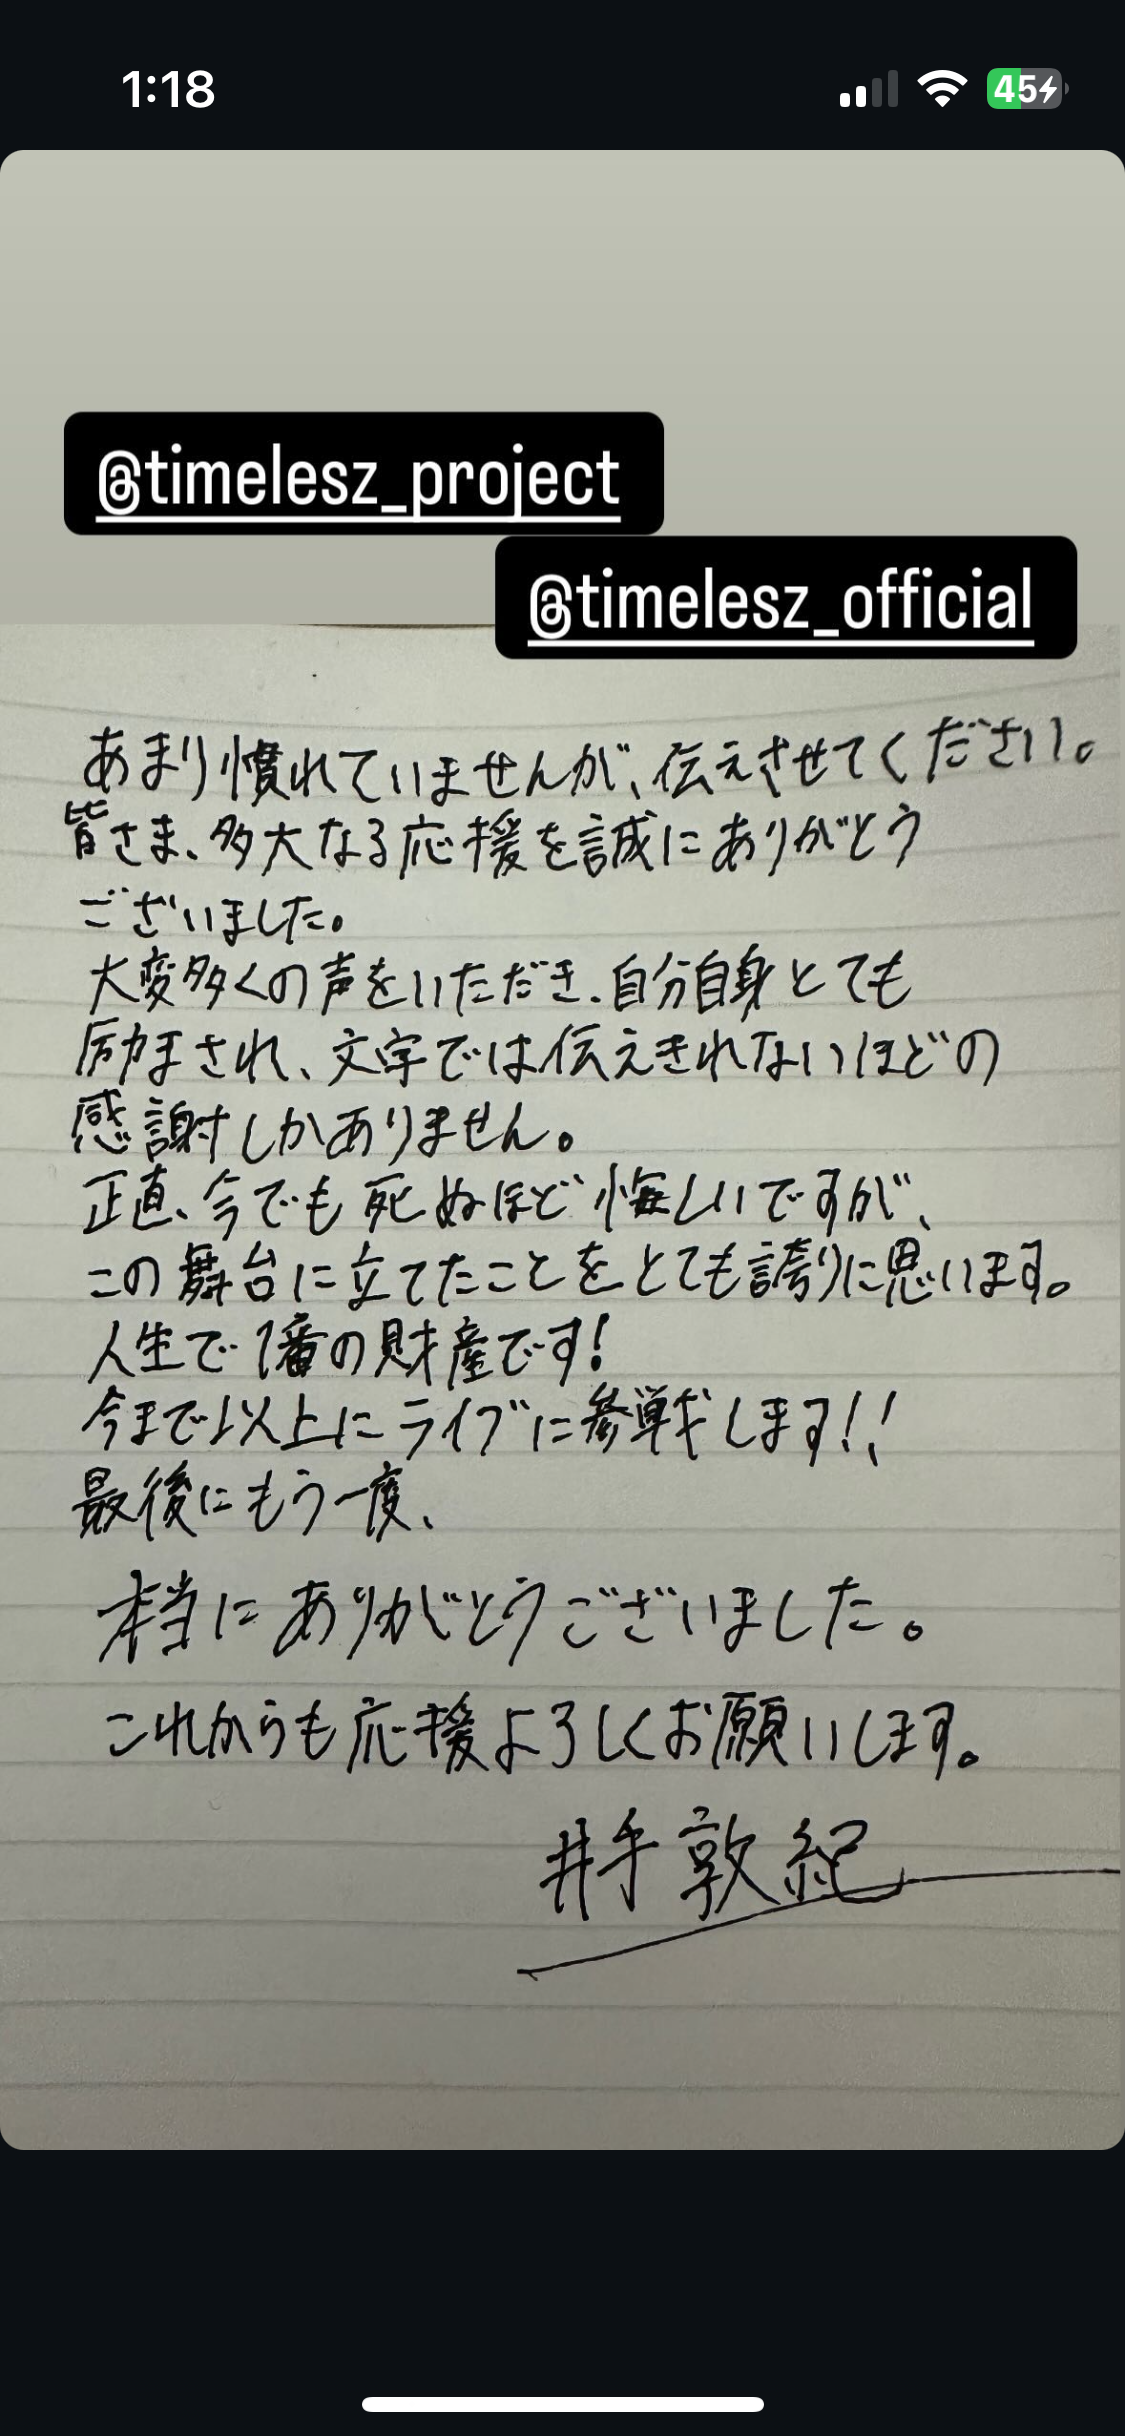 1:18
45
@timelesz_project
@timelesz_official
あまり慣れていませんが、伝えさせてください。
皆さま、多大なる応援を誠にありがとう
ございました。
大変多くの声をいただき、自分自身とても
励まされ、文字では伝えきれないほどの
感謝しかありません。
正直、今でも死ぬほど悔しいですが、
この舞台に立てたことをとても誇りに思います。
人生で1番の財産です!
今まで以上にライブに参戦します!!
最後にもう一度、
本当にありがとうございました。
これからも応援よろしくお願いします。
井手敦紀